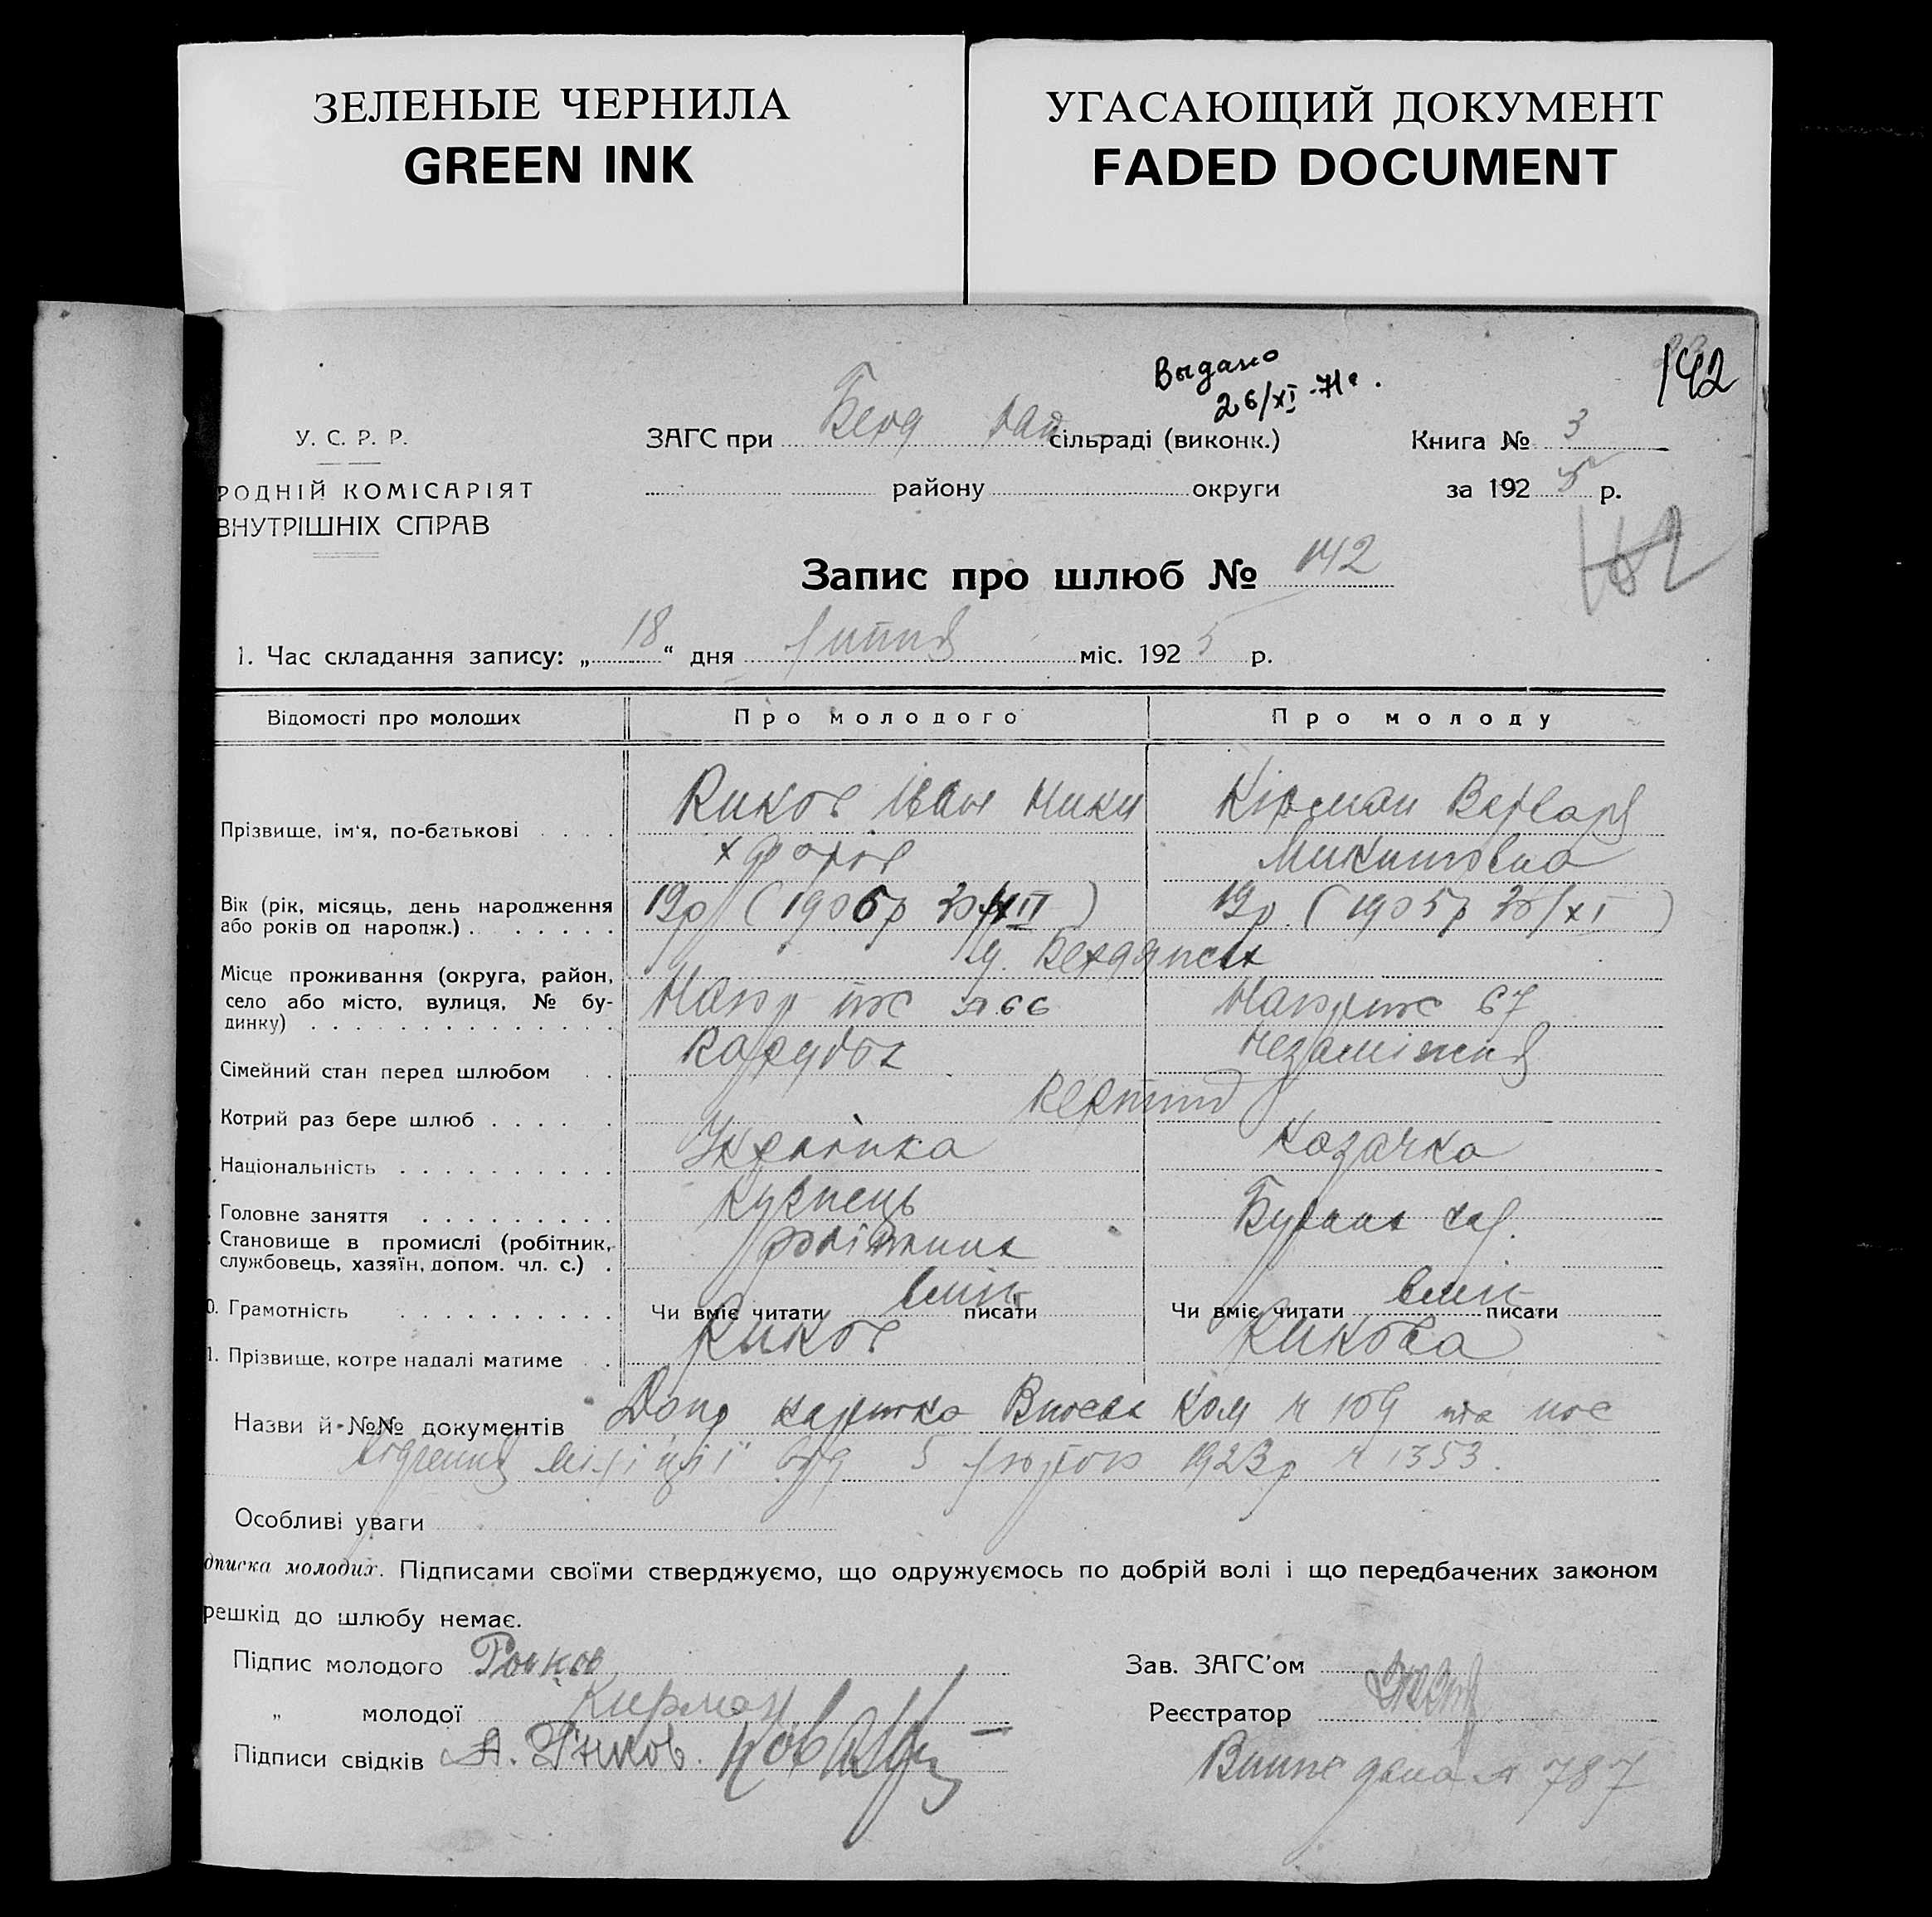 ЗЕЛЕНЫЕ ЧЕРНИЛА
GREEN INK
УГАСАЮЩИЙ ДОКУМЕНТ
FADED DOCUMENT
Выдано
26/XI-71г.
142
У. С. Р. Р.
РОДНІЙ КОМІСАРІЯТ
ВНУТРІШНІХ СПРАВ
ЗАГС при Берд сільраді (виконк.)
району округи
Книга № 3
за 192 5 р.
Запис про шлюб № 142
142
1. Час складання запису: „ 18 “ дня липня міс. 192 5 р.
Відомості про молодих Про молодого Про молоду
Прізвище, ім'я, по-батькові Риков Іван Варвара
Микитовна
Вік (рік, місяць, день народження або років од народж.) 19р (1906р XII) 19р. (1905р /XI)
м. Бердянськ
Місце проживання (округа, район, село або місто, вулиця, № будинку) 66 67
Сімейний стан перед шлюбом парубок незаміжня
Котрий раз бере шлюб
Національність Українка Козачка
Головне заняття
Становище в промислі (робітник, службовець, хазяїн, допом. чл. с.) робітник
0. Грамотність Чи вміє читати вміє писати Чи вміє читати вміє писати
1. Прізвище, котре надалі матиме Риков Рикова
Назви й №№ документів картка Ком № 109 та пос
відчення міліції від 5 лютого 1923р № 1353.
Особливі уваги
дписка молодих. Підписами своїми стверджуємо, що одружуємось по добрій волі і що передбачених законом
решкід до шлюбу немає.
Підпис молодого Риков
„ молодої Кирман
Підписи свідків А. Риков.
Зав. ЗАГС'ом
Реєстратор
дана № 787